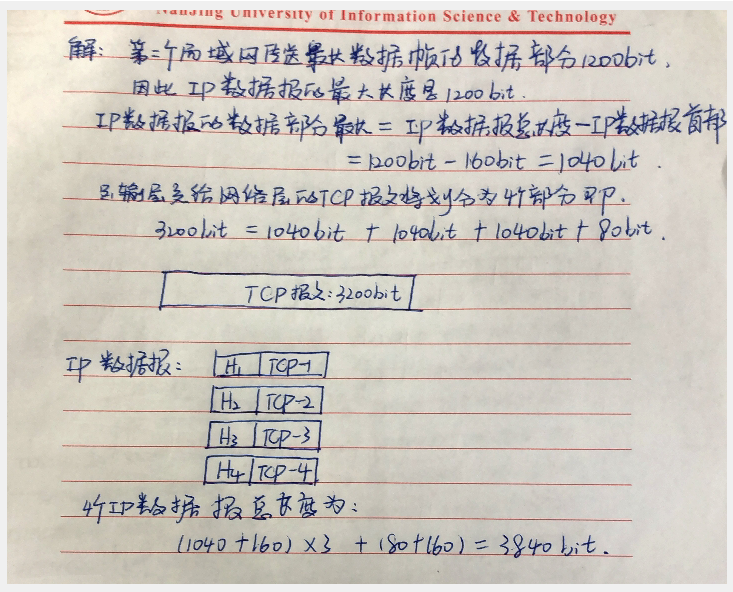 Nanjing University of Information Science & Technology
解: 第二个局域网传送最长数据帧的数据部分1200bit,
因此 IP数据报的最大长度是1200bit.
IP数据报的数据部分最长 = IP数据报总长度-IP数据报首部
= 1200bit - 160bit = 1040bit .
运输层交给网络层的TCP报文将划分为4个部分 即.
3200bit = 1040bit + 1040bit + 1040bit + 80bit .
TCP报文:3200bit
IP数据报: H1 TCP-1
H2 TCP-2
H3 TCP-3
H4 TCP-4
4个IP数据报总长度为:
(1040+160) ×3 + (80+160) = 3840 bit .